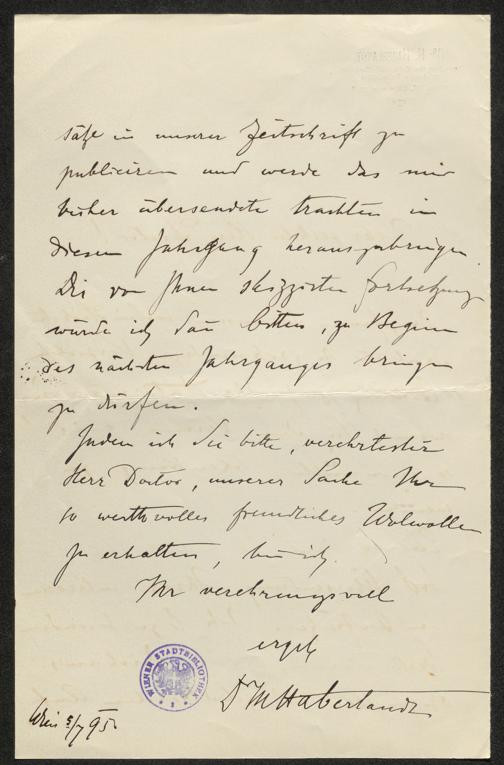 sätze in unserer Zeitschrift zu
publiciren und werde das mir
bisher übersendete trachten in
diesem Jahrgang herauszubringen
Die von Ihnen skizzirten Fortsetzung
würde ich dann bitten, zu Beginn
des nächsten Jahrganges bringen
zu dürfen.
Indem ich Sie bitte, verehrtester
Herr Doctor, unserer Sache Ihr
so werthvolles freundliches Wolwollen
zu erhalten, bin ich
Ihr verehrungsvoll
ergeb
Dr MHaberlandt
WIENER STADTBIBLIOTHEK
Wien 5/7 95